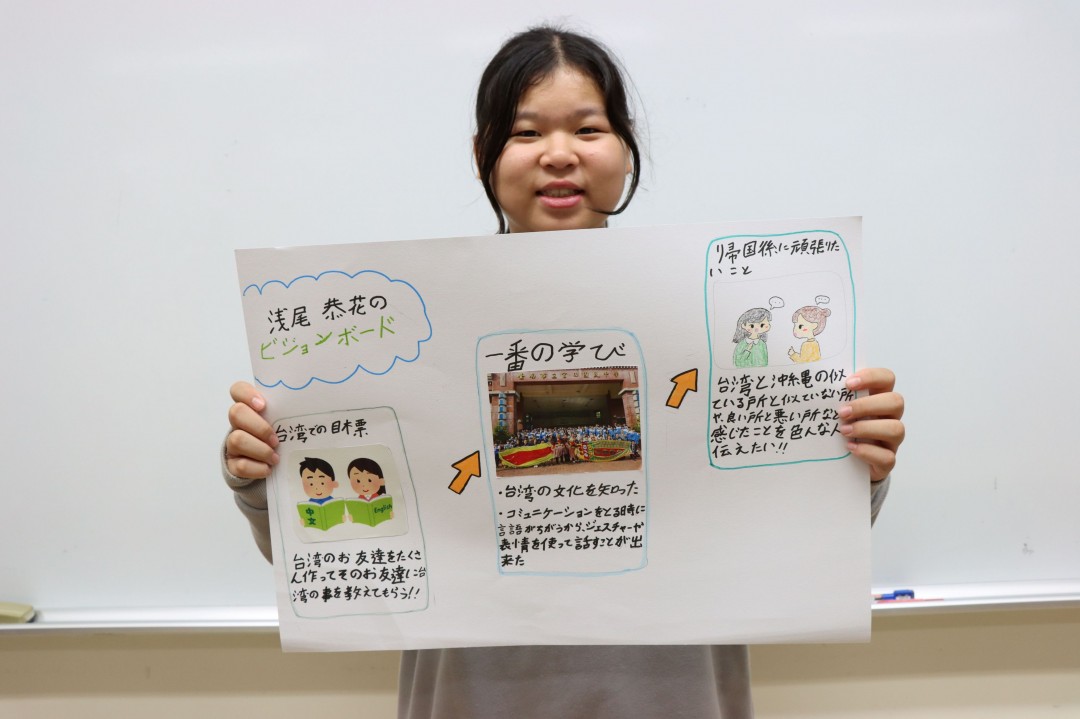 浅尾 恭花の
ビジョンボード
台湾での目標
中文
English
台湾のお友達をたくさ
ん作ってそのお友達に台
湾の事を教えてもらう!!
一番の学び
・台湾の文化を知った
・コミュニケーションをとる時に
言語がちがうから、ジェスチャーや
表情を使って話すことが出
来た
帰国後に頑張りた
いこと
台湾と沖縄の似
ている所と似ていない所
や、良い所と悪い所など
感じたことを色んな人
伝えたい!!